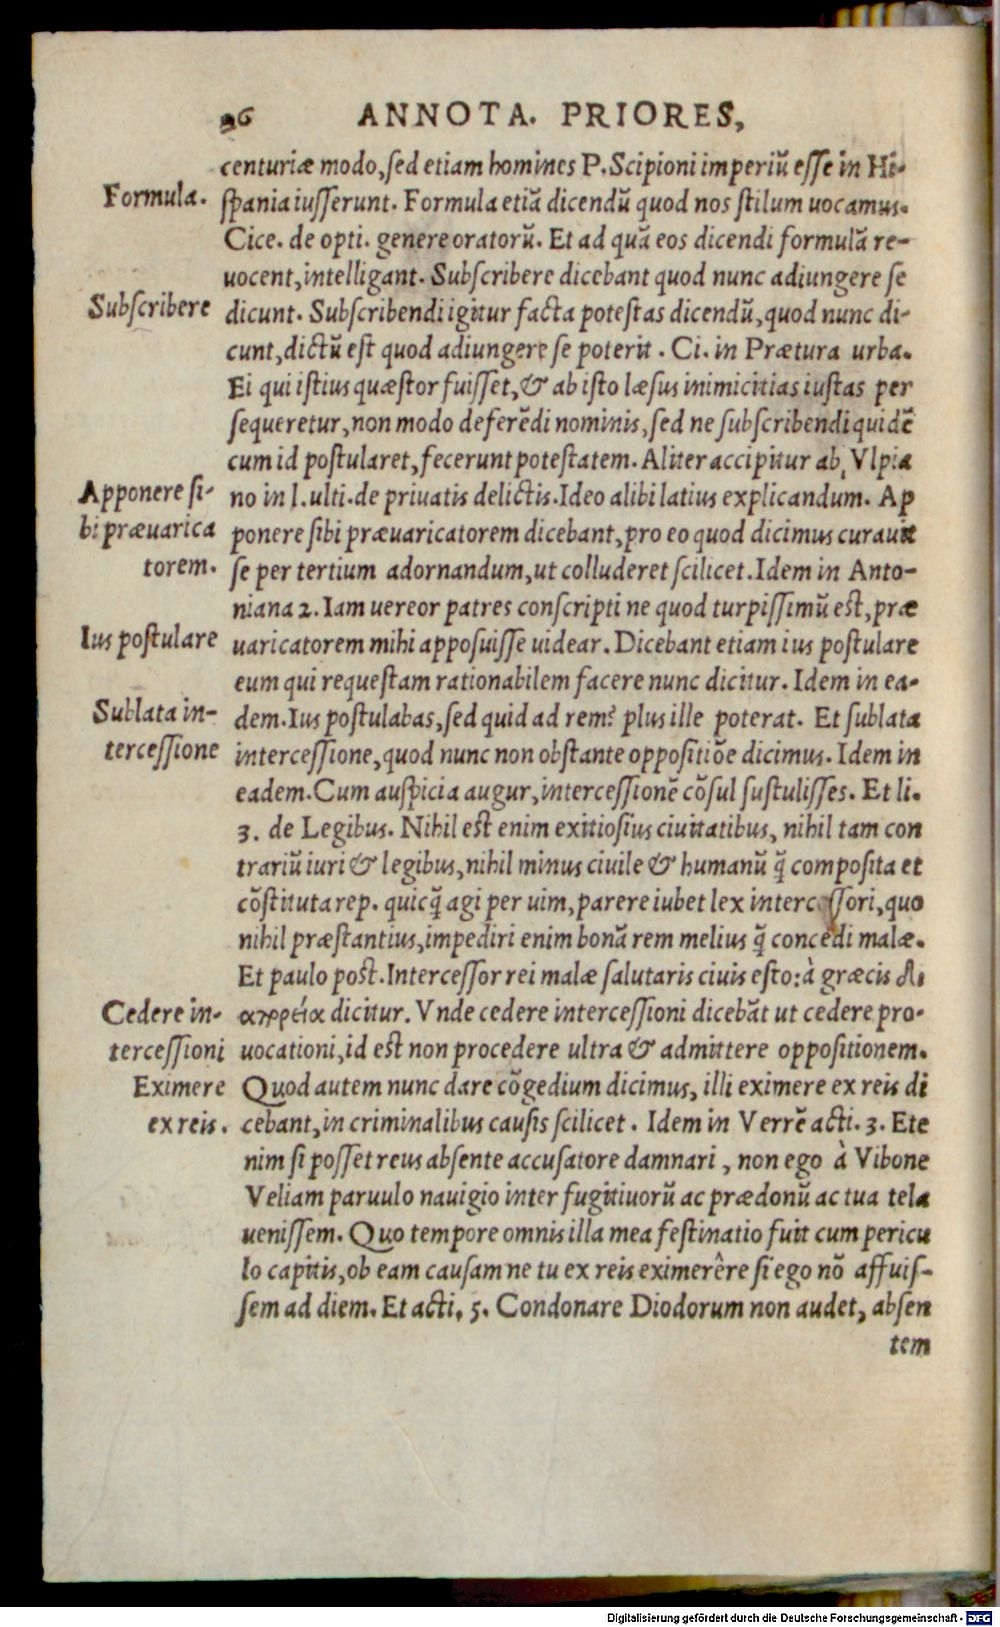 96 ANNOTA. PRIORES,
centuriæ modo, sed etiam homines P. Scipioni imperiũ esse in Hi-
Formula. spania iusserunt. Formula etiã dicendũ quod nos stilum uocamus.
Cice. de opti. genere oratorũ. Et ad quã eos dicendi formulã re-
uocent, intelligant. Subscribere dicebant quod nunc adiungere se
Subscribere dicunt. Subscribendi igitur facta potestas dicendũ, quod nunc di-
cunt, dictũ est quod adiungere se poterit. Ci. in Prætura urba.
Ei qui istius quæstor fuisset, & ab isto læsus inimicitias iustas per
sequeretur, non modo deferẽdi nominis, sed ne subscribendi quidẽ
cum id postularet, fecerunt potestatem. Aliter accipitur ab Vlpia
Apponere si- no in l. ulti. de priuatis delictis. Ideo alibi latius explicandum. Ap
bi præuarica ponere sibi præuaricatorem dicebant, pro eo quod dicimus curauit
torem. se per tertium adornandum, ut colluderet scilicet. Idem in Anto-
niana 2. Iam uereor patres conscripti ne quod turpissimũ est, præ
Ius postulare uaricatorem mihi apposuisse uidear. Dicebant etiam ius postulare
eum qui requestam rationabilem facere nunc dicitur. Idem in ea-
Sublata in- dem. Ius postulabas, sed quid ad rem? plus ille poterat. Et sublata
tercessione intercessione, quod nunc non obstante oppositiõe dicimus. Idem in
eadem. Cum auspicia augur, intercessionẽ cõsul sustulisses. Et li.
3. de Legibus. Nihil est enim exitiosius ciuitatibus, nihil tam con
trariũ iuri & legibus, nihil minus ciuile & humanũ q̃ composita et
cõstituta rep. quicq̃ agi per uim, parere iubet lex intercessori, quo
nihil præstantius, impediri enim bonã rem melius q̃ concedi malæ.
Et paulo post. Intercessor rei malæ salutaris ciuis esto: à græcis δι
Cedere in- ατρρεία dicitur. Vnde cedere intercessioni dicebãt ut cedere pro-
tercessioni uocationi, id est non procedere ultra & admittere oppositionem.
Eximere Quod autem nunc dare cõgedium dicimus, illi eximere ex reis di
ex reis. cebant, in criminalibus causis scilicet. Idem in Verrẽ acti. 3. Ete
nim si posset reus absente accusatore damnari, non ego à Vibone
Veliam paruulo nauigio inter fugitiuorũ ac prædonũ ac tua tela
uenissem. Quo tempore omnis illa mea festinatio fuit cum pericu
lo capitis, ob eam causam ne tu ex reis eximerêre si ego nõ affuis-
sem ad diem. Et acti. 5. Condonare Diodorum non audet, absen
tem
Digitalisierung gefördert durch die Deutsche Forschungsgemeinschaft - DFG